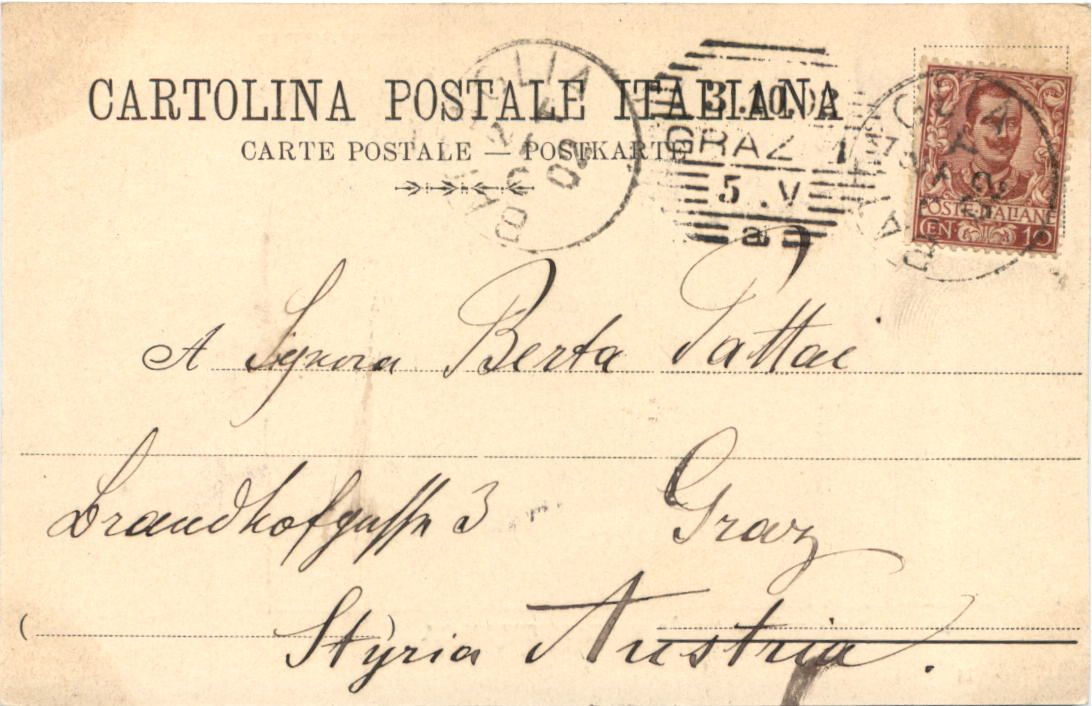 CARTOLINA POSTALE ITALIANA
CARTE POSTALE — POSTKARTE
3.10.03
GRAZ 1
5.V
a
POSTE ITALIANE
CEN 10
A Signora Berta Pattai
Brandhofgasse 3 Graz
Styria Austria.